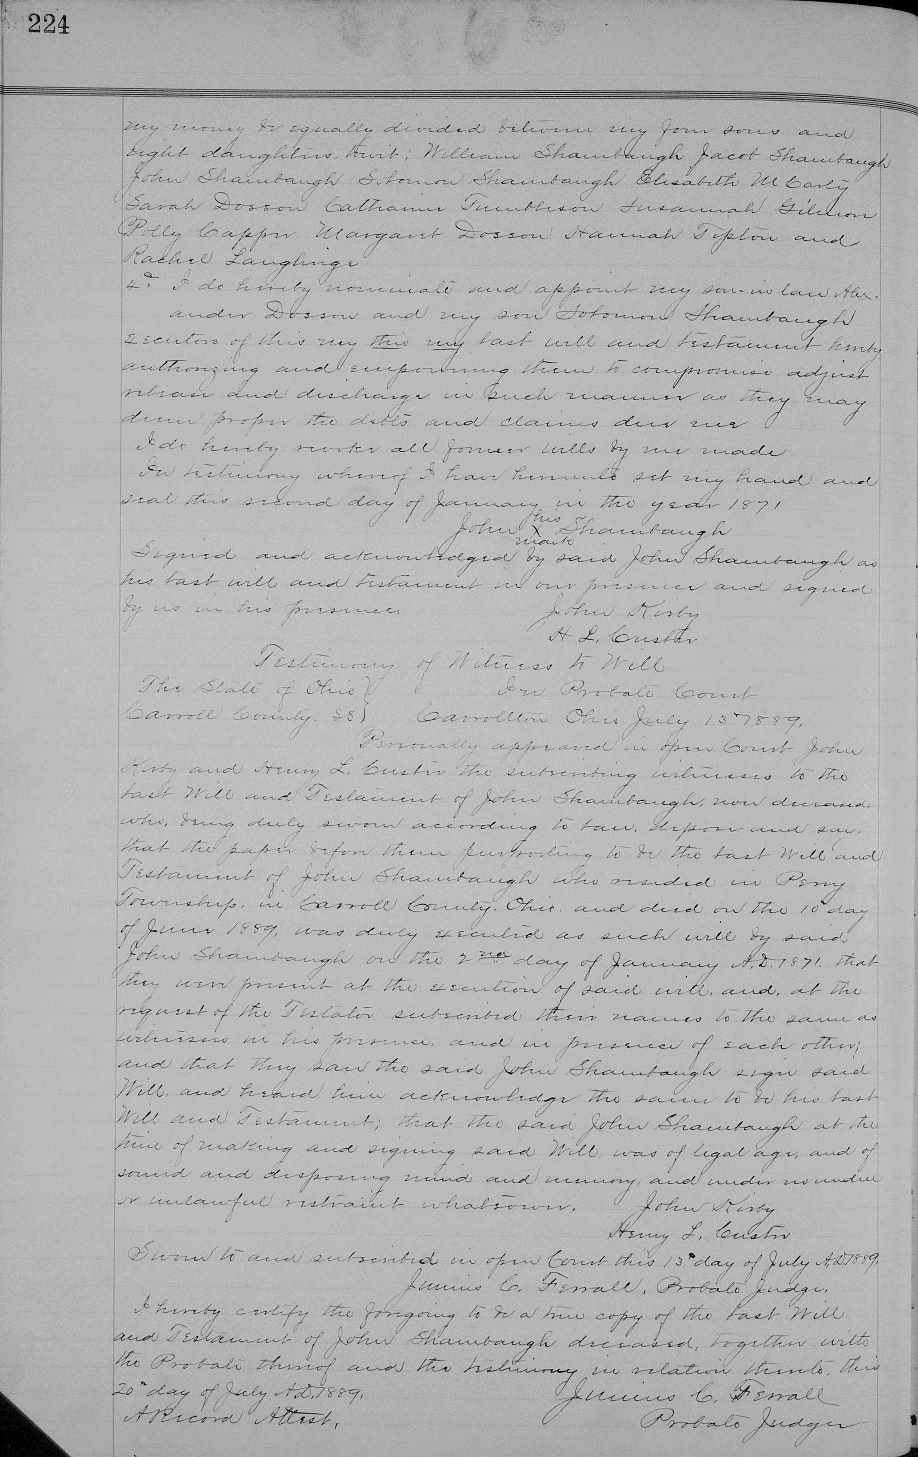 224
my money be equally divided between my four sons and
eight daughters, towit; William Shambaugh Jacob Shambaugh
John Shambaugh Solomon Shambaugh Elisabeth McCarty
Sarah Dosson Catharine Susannah Gilmon
Polly Capper Margaret Dosson Hannah Tipton and
Rachel
4th I do hereby nominate and appoint my son-in law Alex-
ander Dosson and my son Solomon Shambaugh
executors of this my this my last will and testament hereby
authorizing and empowering them to compromise adjust
release and discharge in such manner as they may
deem proper the debts and claims due me
I do hereby revoke all former wills by me made
In testimony whereof I have hereunto set my hand and
seal this second day of January in the year 1871
John his X mark Shambaugh
Signed and acknowledged by said John Shambaugh as
his last will and testament in our presence and signed
by us in his presence.
John Kirby
H L. Custer
Testimony of Witness to Will
The State of Ohio } In Probate Court
Carroll County. SS } Carrollton Ohio July 13" 1889.
Personally appeared in open Court John
Kirby and Henry L. Custer the subscribing witnesses to the
last Will and Testament of John Shambaugh, now deceased.
who, being duly sworn according to law, depose and say.
that the paper before them purporting to be the last Will and
Testament of John Shambaugh who resided in Perry
Township. in Carroll County. Ohio. and died on the 10" day
of June 1889. was duly executed as such will by said
John Shambaugh on the 2nd day of January A.D. 1871. that
they were present at the execution of said will, and, at the
request of the Testator subscribed their names to the same as
witnesses in his presence, and in presence of each other;
and that they saw the said John Shambaugh sign said
Will, and heard him acknowledge the same to be his last
Will and Testament; that the said John Shambaugh at the
time of making and signing said Will, was of legal age, and of
sound and disposing mind and memory, and under no undue
or unlawful restraint whatsoever.
John Kirby
Henry L. Custer
Sworn to and subscribed in open Court this 13" day of July A.D. 1889.
Junius C. Ferrall, Probate Judge.
I hereby certify the foregoing to be a true copy of the last Will
and Testament of John Shambaugh deceased, together with
the Probate thereof and the testimony in relation thereto, this
20" day of July A.D. 1889.
Junius C. Ferrall
A Record Attest,
Probate Judge